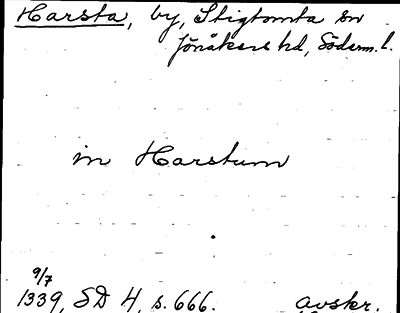 Harsta, by, Stigtomta sn
Jönåkers hd, Söderm. l.
in Harstum
9/7
1339, SD 4, s. 666. avskr.